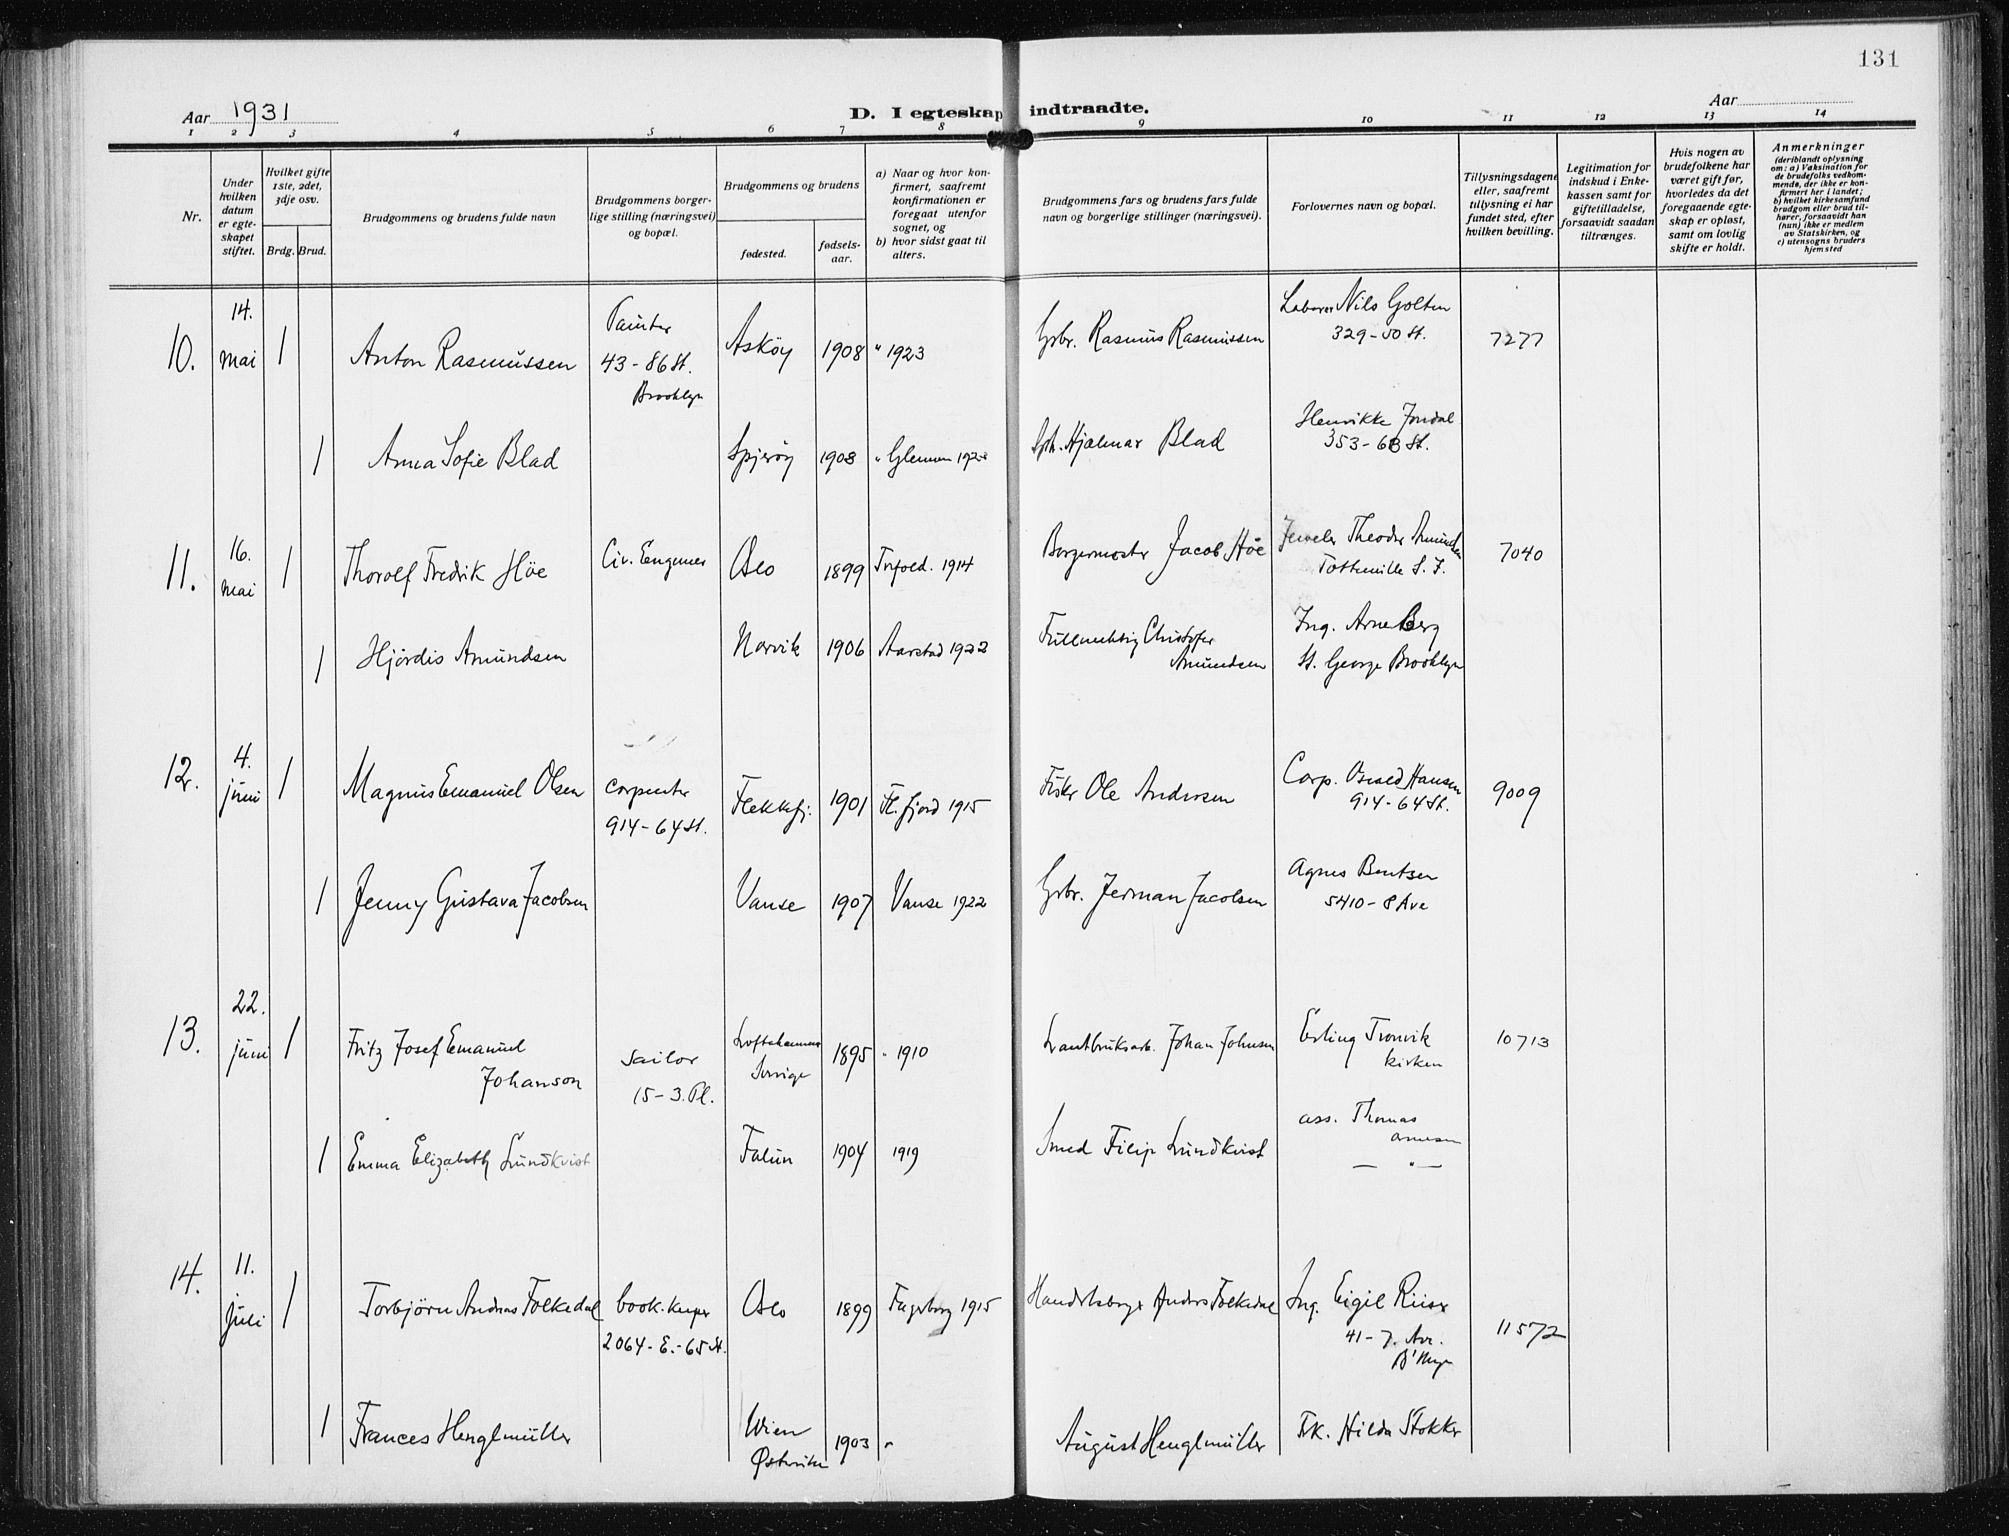 131
Aar 1931
D. I egteskap indtraadte.
Aar
1 2 3 4 5 6 7 8 9 10 11 12 13 14
Nr.
Under
hvilken
datum
er egte-
skapet
stiftet.
Hvilket gifte
1ste, 2det,
3dje osv.
Brdg. Brud.
Brudgommens og brudens fulde navn
Brudgommens borger-
lige stilling (næringsvei)
og bopæl.
Brudgommens og brudens
fødested.
fødsels-
aar.
a) Naar og hvor kon-
firmert, saafremt
konfirmationen er
foregaat utenfor
sognet, og
b) hvor sidst gaat til
alters.
Brudgommens fars og brudens fars fulde
navn og borgerlige stillinger (næringsvei).
Forlovernes navn og bopæl.
Tillysningsdagene
eller, saafremt
tillysning ei har
fundet sted, efter
hvilken bevilling.
Legitimation for
indskud i Enke-
kassen samt for
giftetilladelse,
forsaavidt saadan
tiltrænges.
Hvis nogen av
brudefolkene har
været gift før,
hvorledes da det
foregaaende egte-
skap er opløst,
samt om lovlig
skifte er holdt.
Anmerkninger
(deriblandt oplysning
om: a) Vaksination for
de brudefolks vedkom-
mende, der ikke er kon-
firmert her i landet;
b) hvilket kirkesamfund
brudgom eller brud til-
hører, forsaavidt han
(hun) ikke er medlem
av Statskirken, og
c) utensogns bruders
hjemsted
10.
14.
mai
1
Anton Rasmussen
Painter
43 - 86 St.
Brooklyn
Askøy
1908
" 1923
Gbr. Rasmus Rasmussen
Laborer Nils Golten
329 - 50 St.
7277
1
Anna Sofie Blad
Spjerøy
1908
" Glemmen
Hjalmar Blad
Henrikke Jondal
353 - 63 St.
11.
16.
mai
1
Thorolf Fredrik Höe
Civ. Engener
Oslo
1899
Trefold. 1914
Borgermester Jacob Höe
Jeweler Theodor Amundsen
Tottenville S. I.
7040
1
Hjördis Amundsen
Narvik
1906
Aarstad 1922
Fullmektig Christofer
Amundsen
Ing. Arne Berg
St. George Brooklyn
12.
4.
juni
1
Magnus Emanuel Olsen
Carpenter
914 - 64 St.
Flekkefj.
1901
Fl.fjord 1915
Fisker Ole Andersen
Carp. Osvald Hansen
914 - 64 St.
9009
1
Jenny Gustava Jacobsen
Vanse
1907
Vanse 1922
Gbr. Jerman Jacobsen
Agnes Bentsen
5410 - 8 Ave
13.
22.
juni
1
Fritz Josef Emanuel
Johanson
Sailor
15 - 3. Pl.
Loftahammar
Sverige
1895
" 1910
Lantbruksarb. Johan Johnsen
Erling Tronvik
kirken
10713
1
Emma Elizabeth Lundkvist
Falun
1904
1919
Smed Filip Lundkvist
ass. Thomas
Arnesen
— " —
14.
11.
Juli
1
Torbjörn Andreas Folkedal
book-keeper
2064 - E. - 65 St.
Oslo
1899
Fagerborg 1915
Handelsborger Anders Folkedal
Ing. Eigil Riiser
41 - 7. Ave.
B'klyn
11572
1
Frances Henglmüller
Wien
Østerrike
1903
"
August Henglmüller
Frk. Hilda Stokke